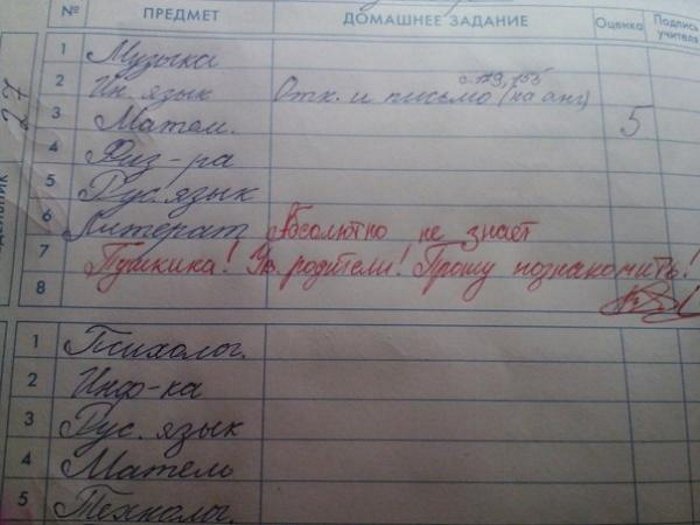 № ПРЕДМЕТ ДОМАШНЕЕ ЗАДАНИЕ Оценка Подпись учителя
27
1 Музыка
с. 179, 155
2 Ин. язык Отк. и письмо (на анг)
3 Матем. 5
4 Физ-ра
5 Рус. язык
6 Литерат Абсолютно не знает
7 Пушкина! Ув. родители! Прошу познакомить!
8
1 Психолог.
2 Инф-ка
3 Рус. язык
4 Матем
5 Технолог.